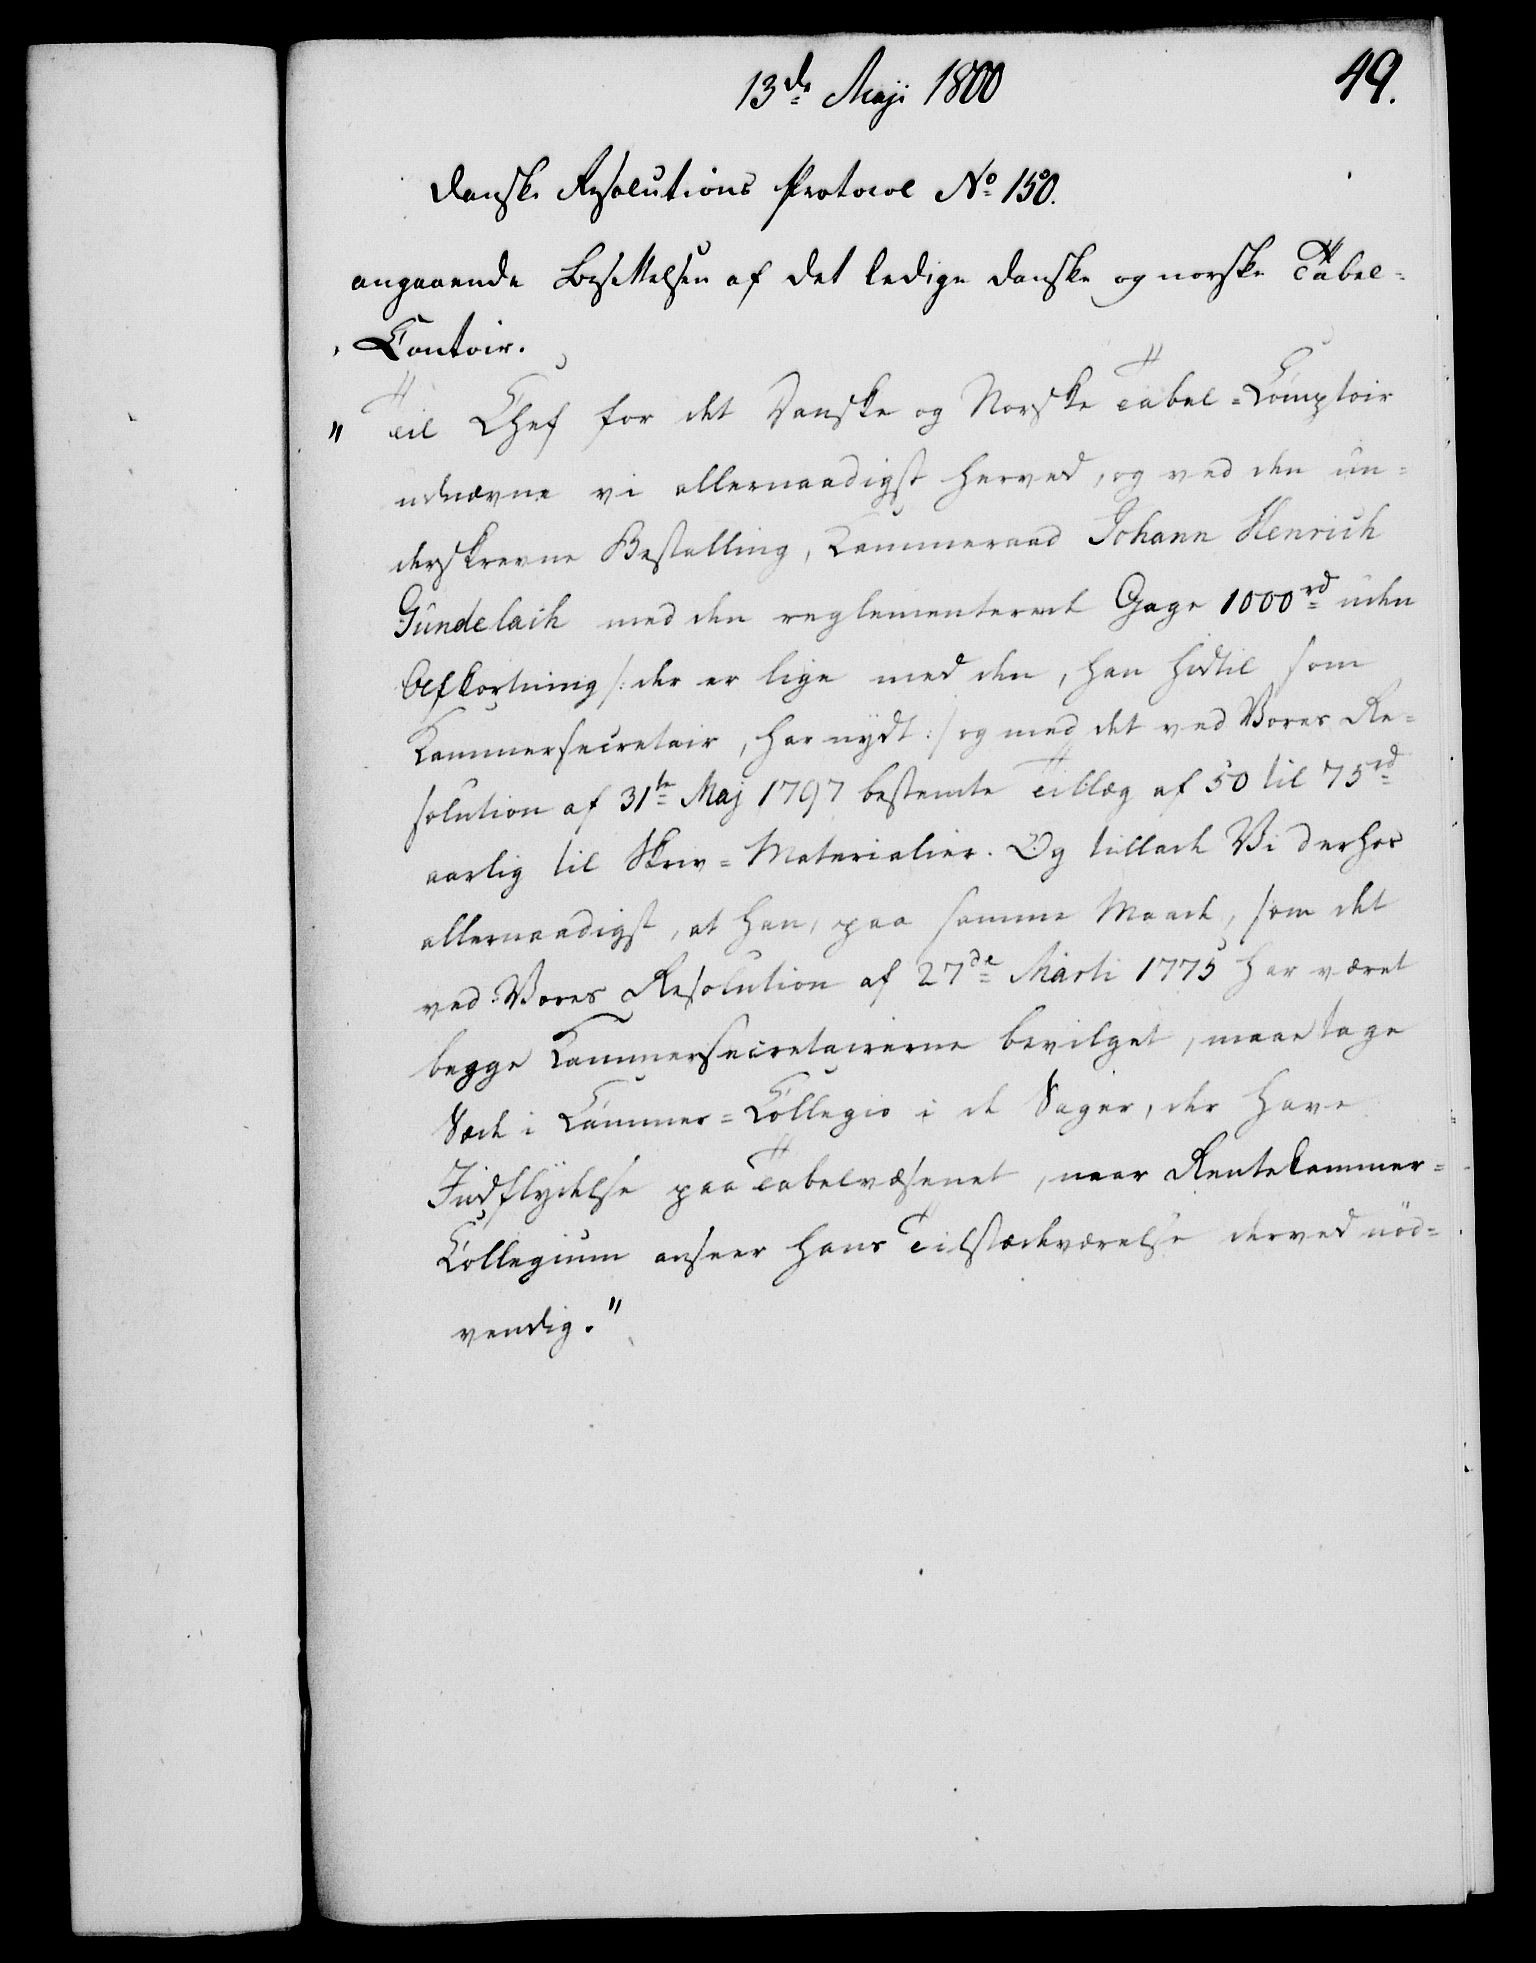 13de Maji 1800
49.
Danske Resolutions Protocol No 150.
angaaende Besettelsen af det ledige danske og norske Tabel-
Contoir.
" Til Chef for det Danske og Norske Tabel-Comptoir
udnævne vi allernaadigst herved, og ved den un-
derskrevne Bestalling, Kammerraad Johann Henrich
Gündelach med den reglementerede Gage 1000rd uden
Afkortning /: der er lige med den, han hidtil som
Kammersecretair, har nydt :/ og med det ved Vores Re-
solution af 31te Maj 1797 bestemte Tillæg af 50 til 75rd
aarlig til Skriv-Materialier. Og tillade Vi derhos
allernaadigst, at han, paa samme Maade, som det
ved Vores Resolution af 27de Marti 1775 har været
begge Kammersecretairerne bevilget, maae tage
Sæde i Kammer-Collegio i de Sager, der have
Indflydelse paa Tabelvæsenet, naar Rentekammer-
Collegium anseer hans Tilstædeværelse derved nöd-
vendig."